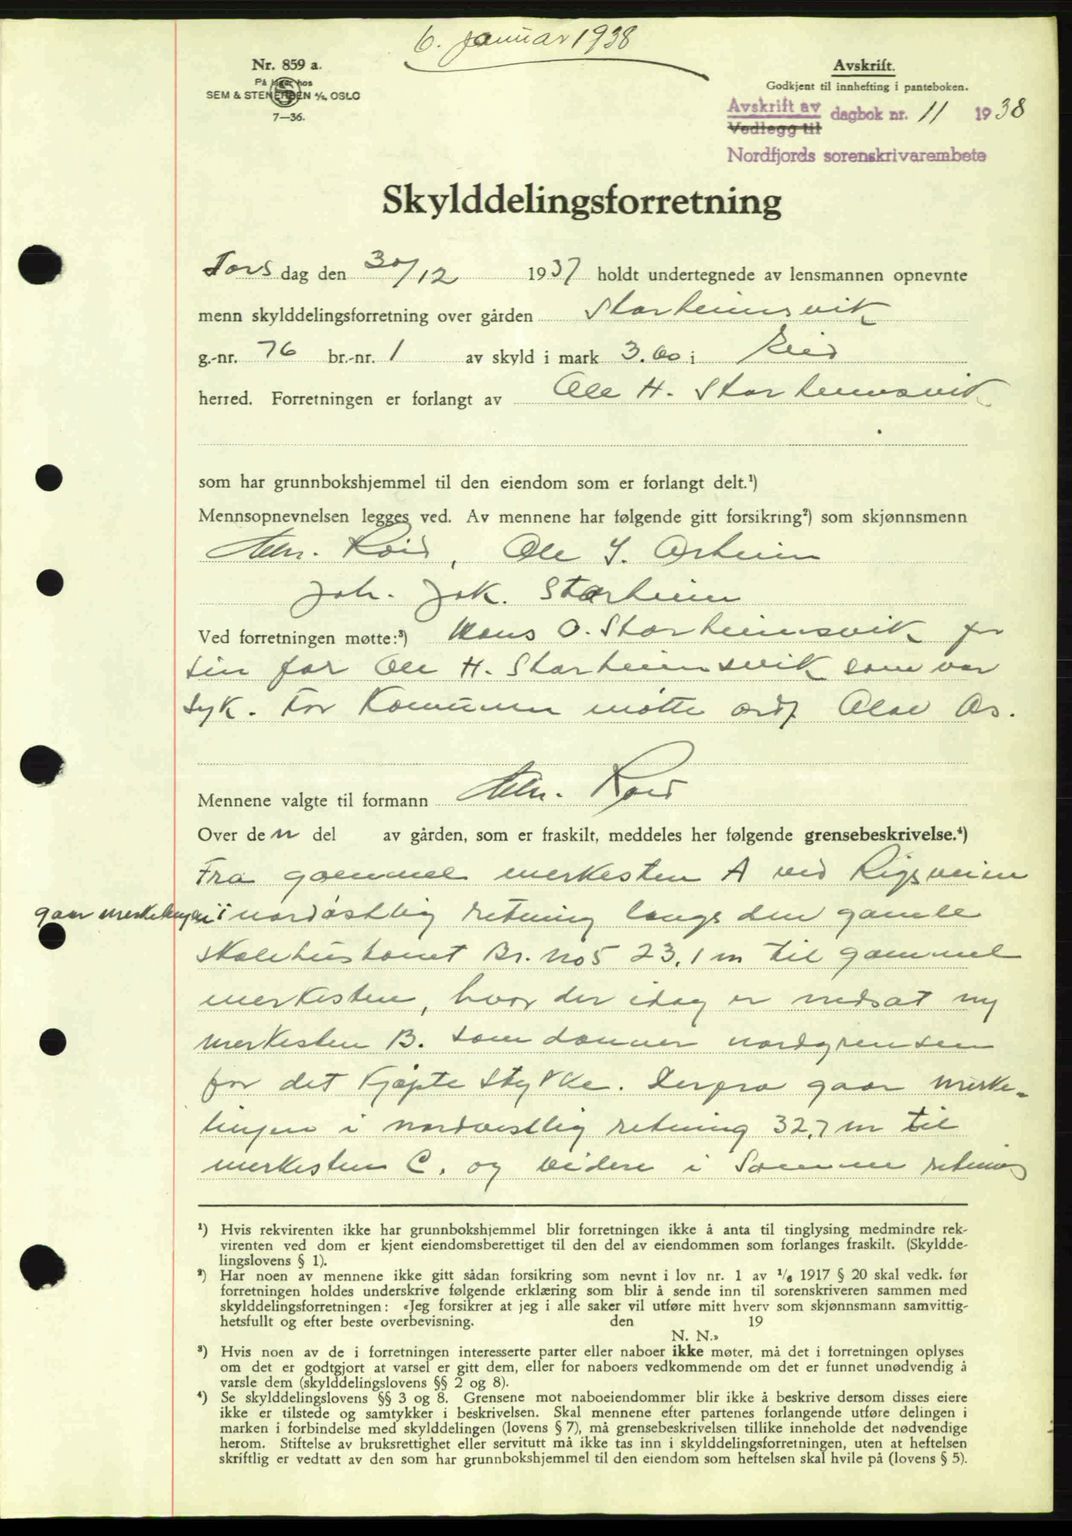 6. januar 1938
Nr. 859 a.
På lager hos
SEM & STENERSEN A/S, OSLO
7—36.
Avskrift.
Godkjent til innhefting i panteboken.
Avskrift av
Vedlegg til
dagbok nr. 11 1938
Nordfjords sorenskrivarembete
Skylddelingsforretning
Torsdag den 30/12 1937 holdt undertegnede av lensmannen opnevnte
menn skylddelingsforretning over gården Starheimsvik
g.-nr. 76 br.-nr. 1 av skyld i mark 3.60 i Eid
herred. Forretningen er forlangt av Ole H. Starheimsvik
som har grunnbokshjemmel til den eiendom som er forlangt delt.¹)
Mennsopnevnelsen legges ved. Av mennene har følgende gitt forsikring²) som skjønnsmenn
Roid, Ole Y. Orheim
Joh. Jak. Starheim
Ved forretningen møtte:³) Hans O. Starheimsvik for
sin far Ole H. Starheimsvik som var
syk. For Kommunen møtte ordf. Olav Os.
Mennene valgte til formann Roid
Over den del av gården, som er fraskilt, meddeles her følgende grensebeskrivelse.⁴)
Fra gammel merkesten A ved Rigsveien
gaar merkelingen i nordøstlig retning langs den gamle
skolehustomt Br. no 5 23,1 m til gammel
merkesten, hvor der idag er nedsat ny
merkesten B. som danner nordgrensen
for det kjøpte stykke. Derfra gaar merke-
lingen i nordvestlig retning 32,7 m til
merkesten C. og videre i samme retning
¹) Hvis rekvirenten ikke har grunnbokshjemmel blir forretningen ikke å anta til tinglysing medmindre rek-
virenten ved dom er kjent eiendomsberettiget til den del av eiendommen som forlanges fraskilt. (Skyldde-
lingslovens § 1).
²) Har noen av mennene ikke gitt sådan forsikring som nevnt i lov nr. 1 av 1/6 1917 § 20 skal vedk. før
forretningen holdes underskrive følgende erklæring som blir å sende inn til sorenskriveren sammen med
skylddelingsforretningen: «Jeg forsikrer at jeg i alle saker vil utføre mitt hverv som skjønnsmann samvittig-
hetsfullt og efter beste overbevisning. den 19
N. N.»
³) Hvis noen av de i forretningen interesserte parter eller naboer ikke møter, må det i forretningen oplyses
om det er godtgjort at varsel er gitt dem, eller for naboers vedkommende om det er funnet unødvendig å
varsle dem (skylddelingslovens §§ 2 og 8).
⁴) Se skylddelingslovens §§ 3 og 8. Grensene mot naboeiendommer blir ikke å beskrive dersom disses eiere
ikke er tilstede og samtykker i beskrivelsen. Skal mennene efter partenes forlangende utføre delingen i
marken i forbindelse med skylddelingen (lovens § 7), må grensebeskrivelsen tillike inneholde det nødvendige
herom. Stiftelse av bruksrettighet eller servitutt må ikke tas inn i skylddelingsforretningen, uten at heftelsen
skriftlig er vedtatt av den som har grunnbokshjemmel til den eiendom som heftelsen skal hvile på (lovens § 5).